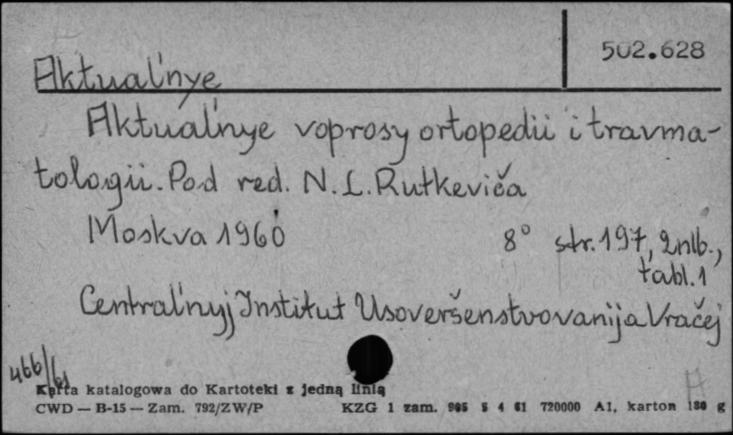 502.628
Aktual'nye
Aktual'nye voprosy ortopedii i travma-
tologii. Pod red. N. L. Rutkeviča
Moskva 1960
8° str. 197, 2 nlb.,
tabl. 1
Central'nyj Institut Usoveršenstvovanija Vračej
466/61
Karta katalogowa do Kartoteki z jedną linią
CWD — B-15 — Zam. 792/ZW/P KZG 1 zam. 905 5 4 61 720000 A1, karton 180 g